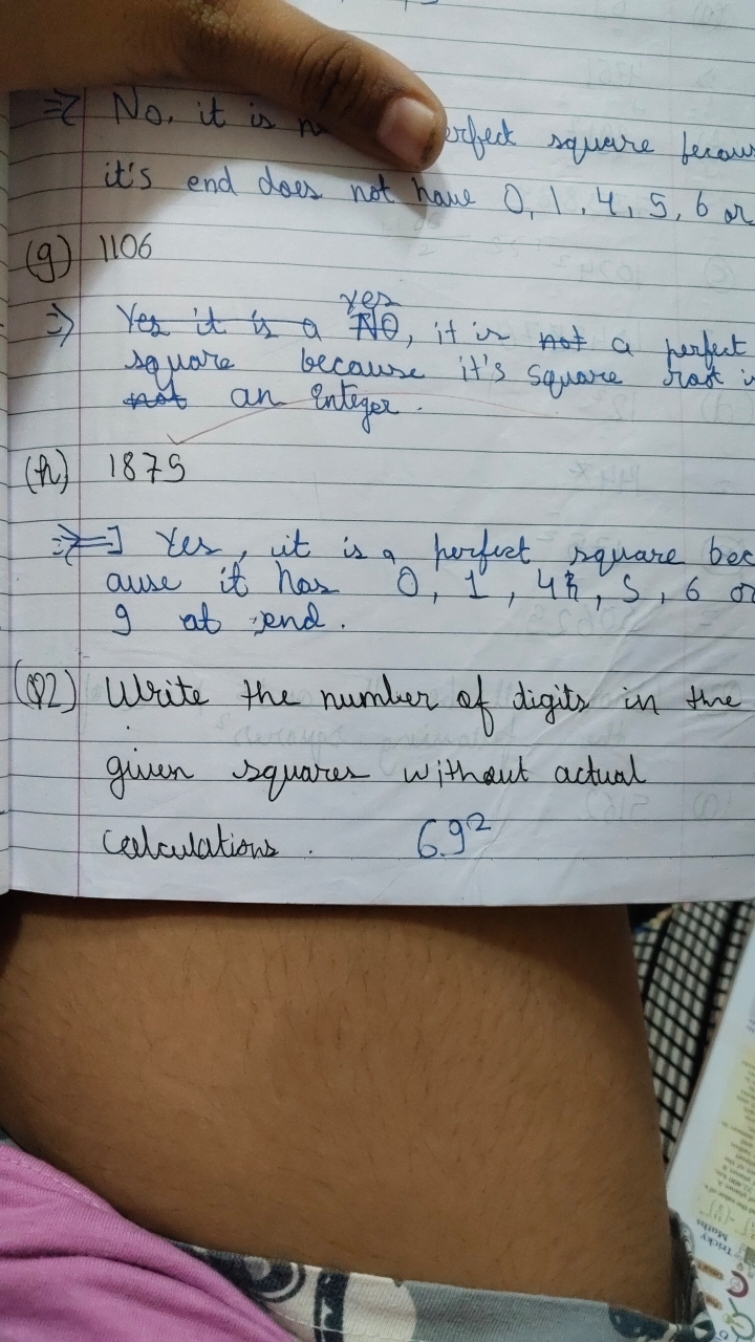 => No, it is n erfect square becau
it's end does not have 0, 1, 4, 5, 6 or
(g) 1106
yes
=> Yes it is a NO, it is not a perfect
square because it's square root i
not an integer.
(h) 1875
=> Yes, it is a perfect square bec
ause it has 0, 1, 4, 5, 6 or
9 at end.
(Q2) Write the number of digits in the
given squares without actual
calculations. 69²
Tricky
Maths